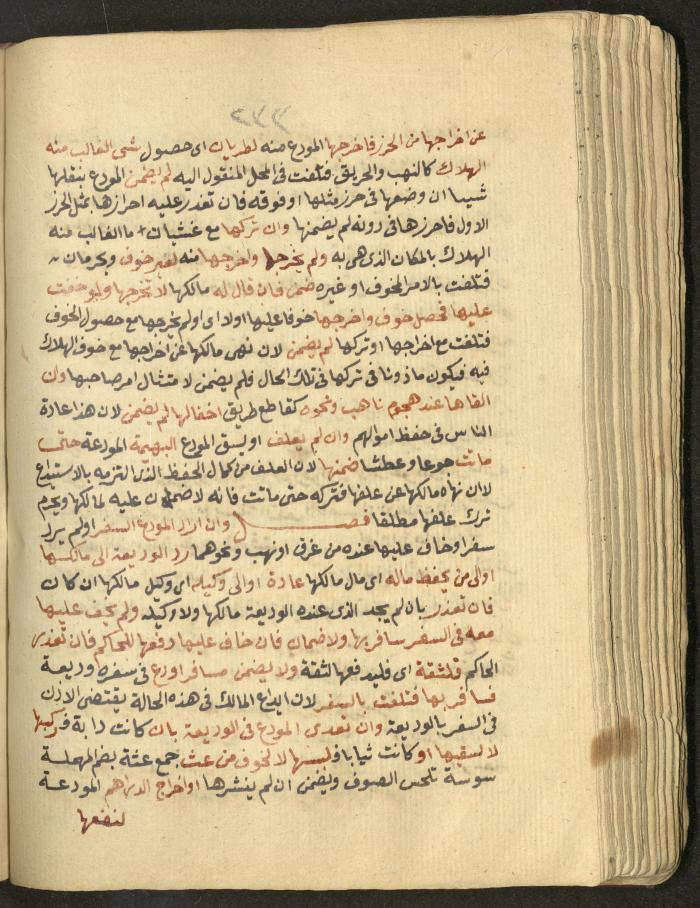 عن اخراجها من الحرز فاخرجها المودع منه لطريان اى حصول شى الغالب منه
الهلاك كالنهب والحريق فتلفت فى المحل المنقول اليه لم يضمن المودع بنقلها
شيا ان وضعها فى حرز مثلها او فوقه فان تعذر عليه احرازها بمثل الحرز
الاول فاحرزها فى دونه لم يضمنها وان تركها مع غشيان ما الغالب منه
الهلاك بالمكان الذى هى به ولم يخرجها او اخرجها منه لغير خوف ويحرمان
فتلفت بالامر المخوف او غيره ضمن فان قال له مالكها لا تخرجها ولو خفت
عليها فحصل خوف واخرجها خوفا عليها اولا اى او لم يخرجها مع حصول الخوف
فتلفت مع اخراجها او تركها لم يضمن لان نهى مالكها عن اخراجها مع خوف الهلاك
فيه فيكون ماذونا فى تركها فى تلك الحال فلم يضمن لامتثال امر صاحبها وان
القاها عند هجوم ناهب ونحوه كقاطع طريق اخفا لها لم يضمن لان هذا عادة
الناس فى حفظ اموالهم وان لم يعلف او يسق المودع البهيمة المودعة حتى
ماتت جوعا وعطشا ضمنها لان العلف من كمال الحفظ الذى التزمه بالاستيداع
لا ان نهاه مالكها عن علفها فتركه حتى ماتت فانه لا ضمان عليه لمالكها ويحرم
ترك علفها مطلقا فصل وان اراد المودع السفر او لم يرد
سفرا وخاف عليها عنده من غرق او نهب ونحوهما رد الوديعة الى مالكها
او الى من يحفظ ماله اى مال مالكها عادة او الى وكيله اى وكيل مالكها ان كان
فان تعذر بان لم يجد الذى عنده الوديعة مالكها ولا وكيله ولم يخف عليها
معه فى السفر سافر بها ولا ضمان فان خاف عليها دفعها للحاكم فان تعذر
الحاكم فلثقة اى فليدفعها لثقة ولا يضمن مسافر اودع فى سفره وديعة
فسافر بها فتلفت بالسفر لان ايداع المالك فى هذه الحالة يقتضى الاذن
فى السفر بالوديعة وان تعدى المودع فى الوديعة بان كانت دابة فركبها
لا لسقيها او كانت ثيابا فلبسها لا لخوف من عث جمع عثة بضم المهملة
سوسة تلحس الصوف ويضمن ان لم ينشرها او اخراج الدراهم المودعة
لنفعها